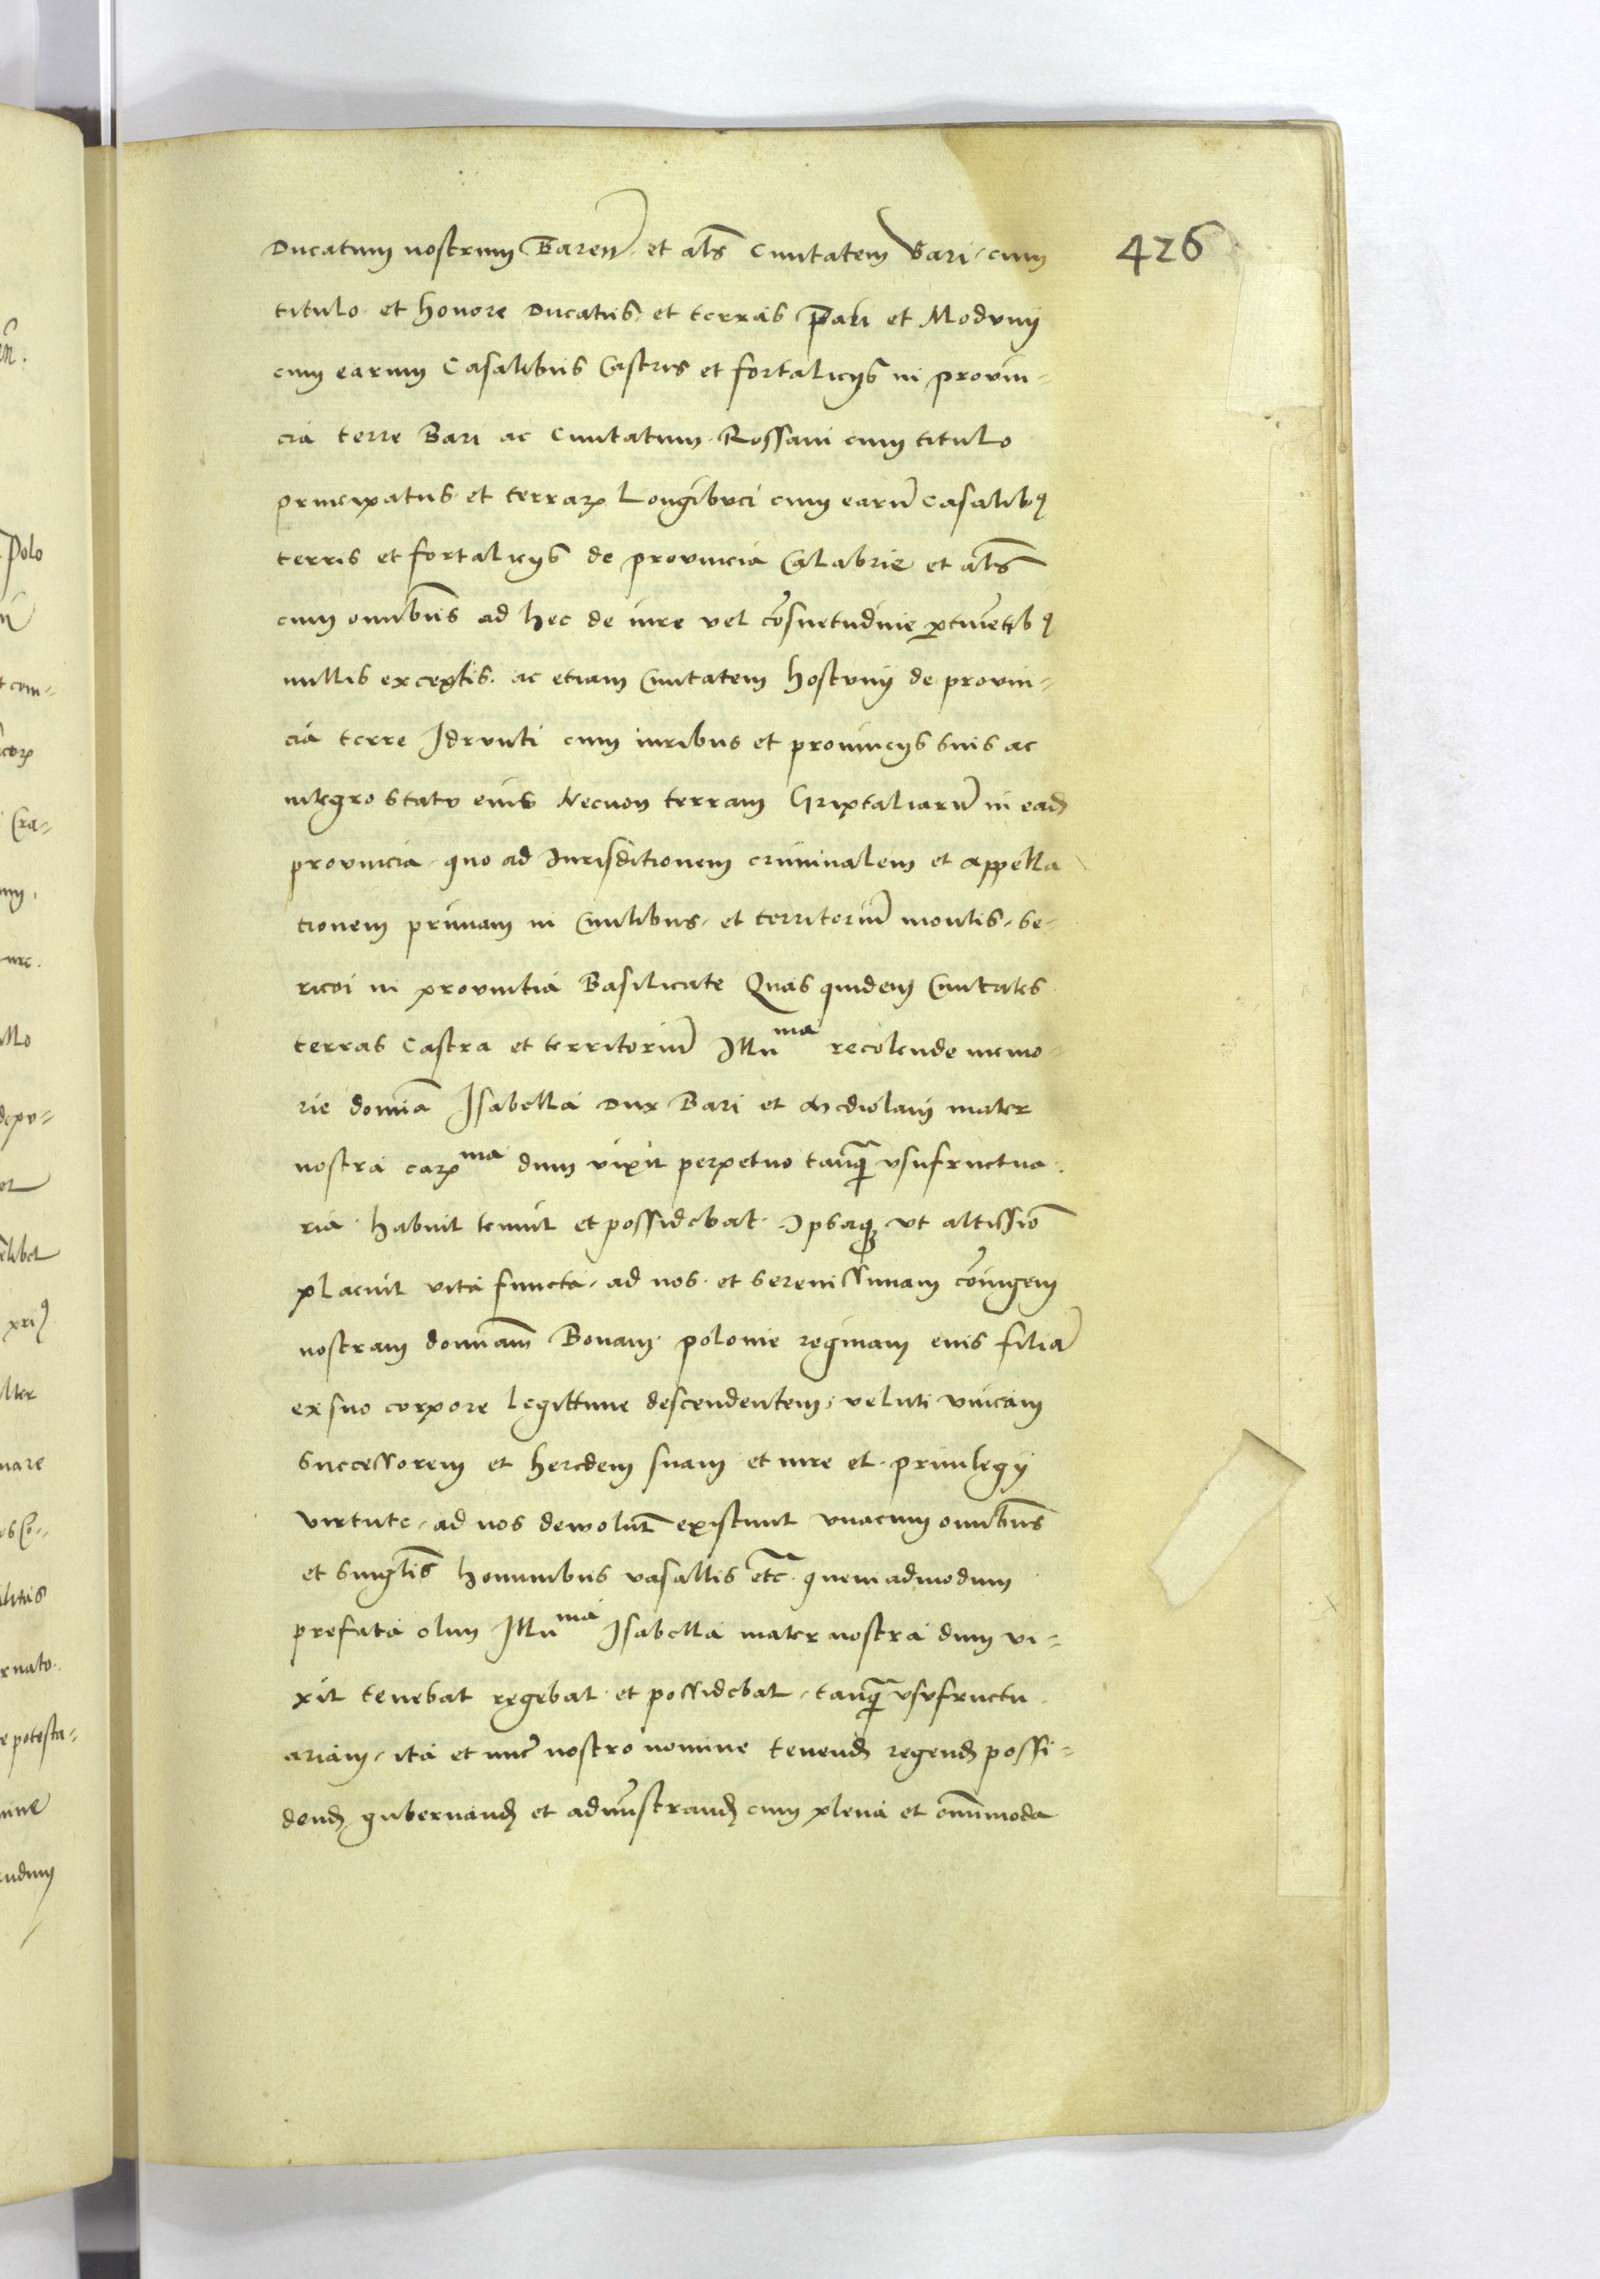 426
Ducatum nostrum Baren et als Civitatem Bari cum
titulo et honore Ducatus et terras Pali et Modunij
cum earum Casalibus Castris et fortalicijs in provin-
cia terre Bari ac Civitatum Rossani cum titulo
principatus et terrarum Longibuci cum earum casalibus
terris et fortalicijs de provincia Calabrie et als
cum omnibus ad hec de iure vel consuetudine pertinentibus
nullis exceptis ac etiam Civitatem hostunij de provin-
cia terre Idrunti cum iuribus et provincijs suis ac
integro statu eius Necnon terram Griptaliarum in ead
provincia quo ad Jurisditionem criminalem et appella
tionem primam in Civilibus et territorium montis se-
ricoi in provintia Basilicate Quas quidem Civitates
terras Castra et territorium Illuma recolende memo-
rie domina Isabella Dux Bari et Mediolani mater
nostra carma dum vixit perpetuo tanquam usufructua
ria habuit tenuit et possidebat Ipsaque ut altissimo
placuit vita functa ad nos et serenissimam coniugem
nostram dominam Bonam polonie reginam eius filiam
ex suo corpore legittime descendentem veluti unicam
successorem et heredem suam et iure et privilegij
virtute ad nos dewolute existunt unacum omnibus
et singulis hominibus vasallis etc quemadmodum
prefata olim Illuma Isabella mater nostra dum vi-
xit tenebat regebat et possidebat tanquam usufructu
ariam ita et nunc nostro nomine tenend regend possi-
dend gubernand et administrand cum plena et omnimoda